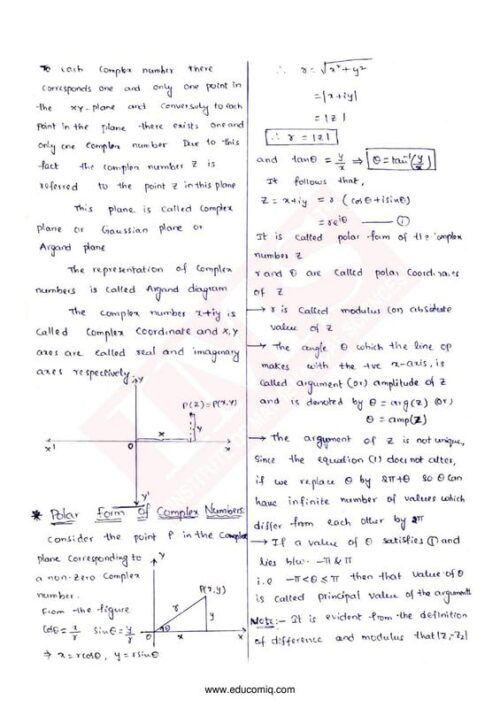 To each complex number there
corresponds one and only one point in
the xy-plane and conversely to each
point in the plane there exists one and
only one complex number Due to this
fact the complex number z is
referred to the point z in this plane
This plane is called complex
plane or Gaussian plane or
Argand plane
The representation of complex
numbers is called Argand diagram
The complex number x+iy is
called complex coordinate and x,y
axes are called real and imaginary
axes respectively.
y
P(z)=P(x,y)
y
x
x'
0
x
y'
* Polar Form Of Complex Numbers:
Consider the point P in the complex
plane corresponding to
a non-zero complex
number.
From the figure
cosθ = x/r sinθ = y/r
⇒ x = r cosθ, y = r sinθ
y
P(x,y)
r
y
θ
0
x
x
∴ r = √x²+y²
= |x+iy|
= |z|
∴ r = |z|
and tanθ = y/x ⇒ θ = tan⁻¹(y/x)
It follows that,
z = x+iy = r (cosθ+isinθ)
= re^iθ — ①
It is called polar form of the complex
number z
r and θ are called polar coordinates
of z
→ r is called modulus (or) absolute
value of z
→ The angle θ which the line op
makes with the +ve x-axis, is
called argument (or) amplitude of z
and is denoted by θ = arg(z) (or)
θ = amp(z)
→ The argument of z is not unique,
Since the equation (1) does not alter,
if we replace θ by 2π+θ so θ can
have infinite number of values which
differ from each other by 2π
→ If a value of θ satisfies ① and
lies b/w -π & π
i.e -π<θ≤π then that value of θ
is called principal value of the argument
Note:- It is evident from the definition
of difference and modulus that |z₁-z₂|
www.educomiq.com